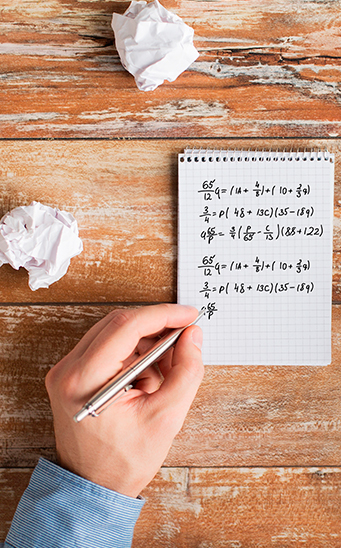 65/12 q = (1A + 4/8) + (10 + 3/3 q)
3/4 = P( 48 + 13C)(35-18q)
9 65/P = 3/4 (P/65 - C/15)(88+1,22)
65/12 q = (1A + 4/8) + (10 + 3/3 q)
3/4 = P( 48 + 13C)(35-18q)
65/P